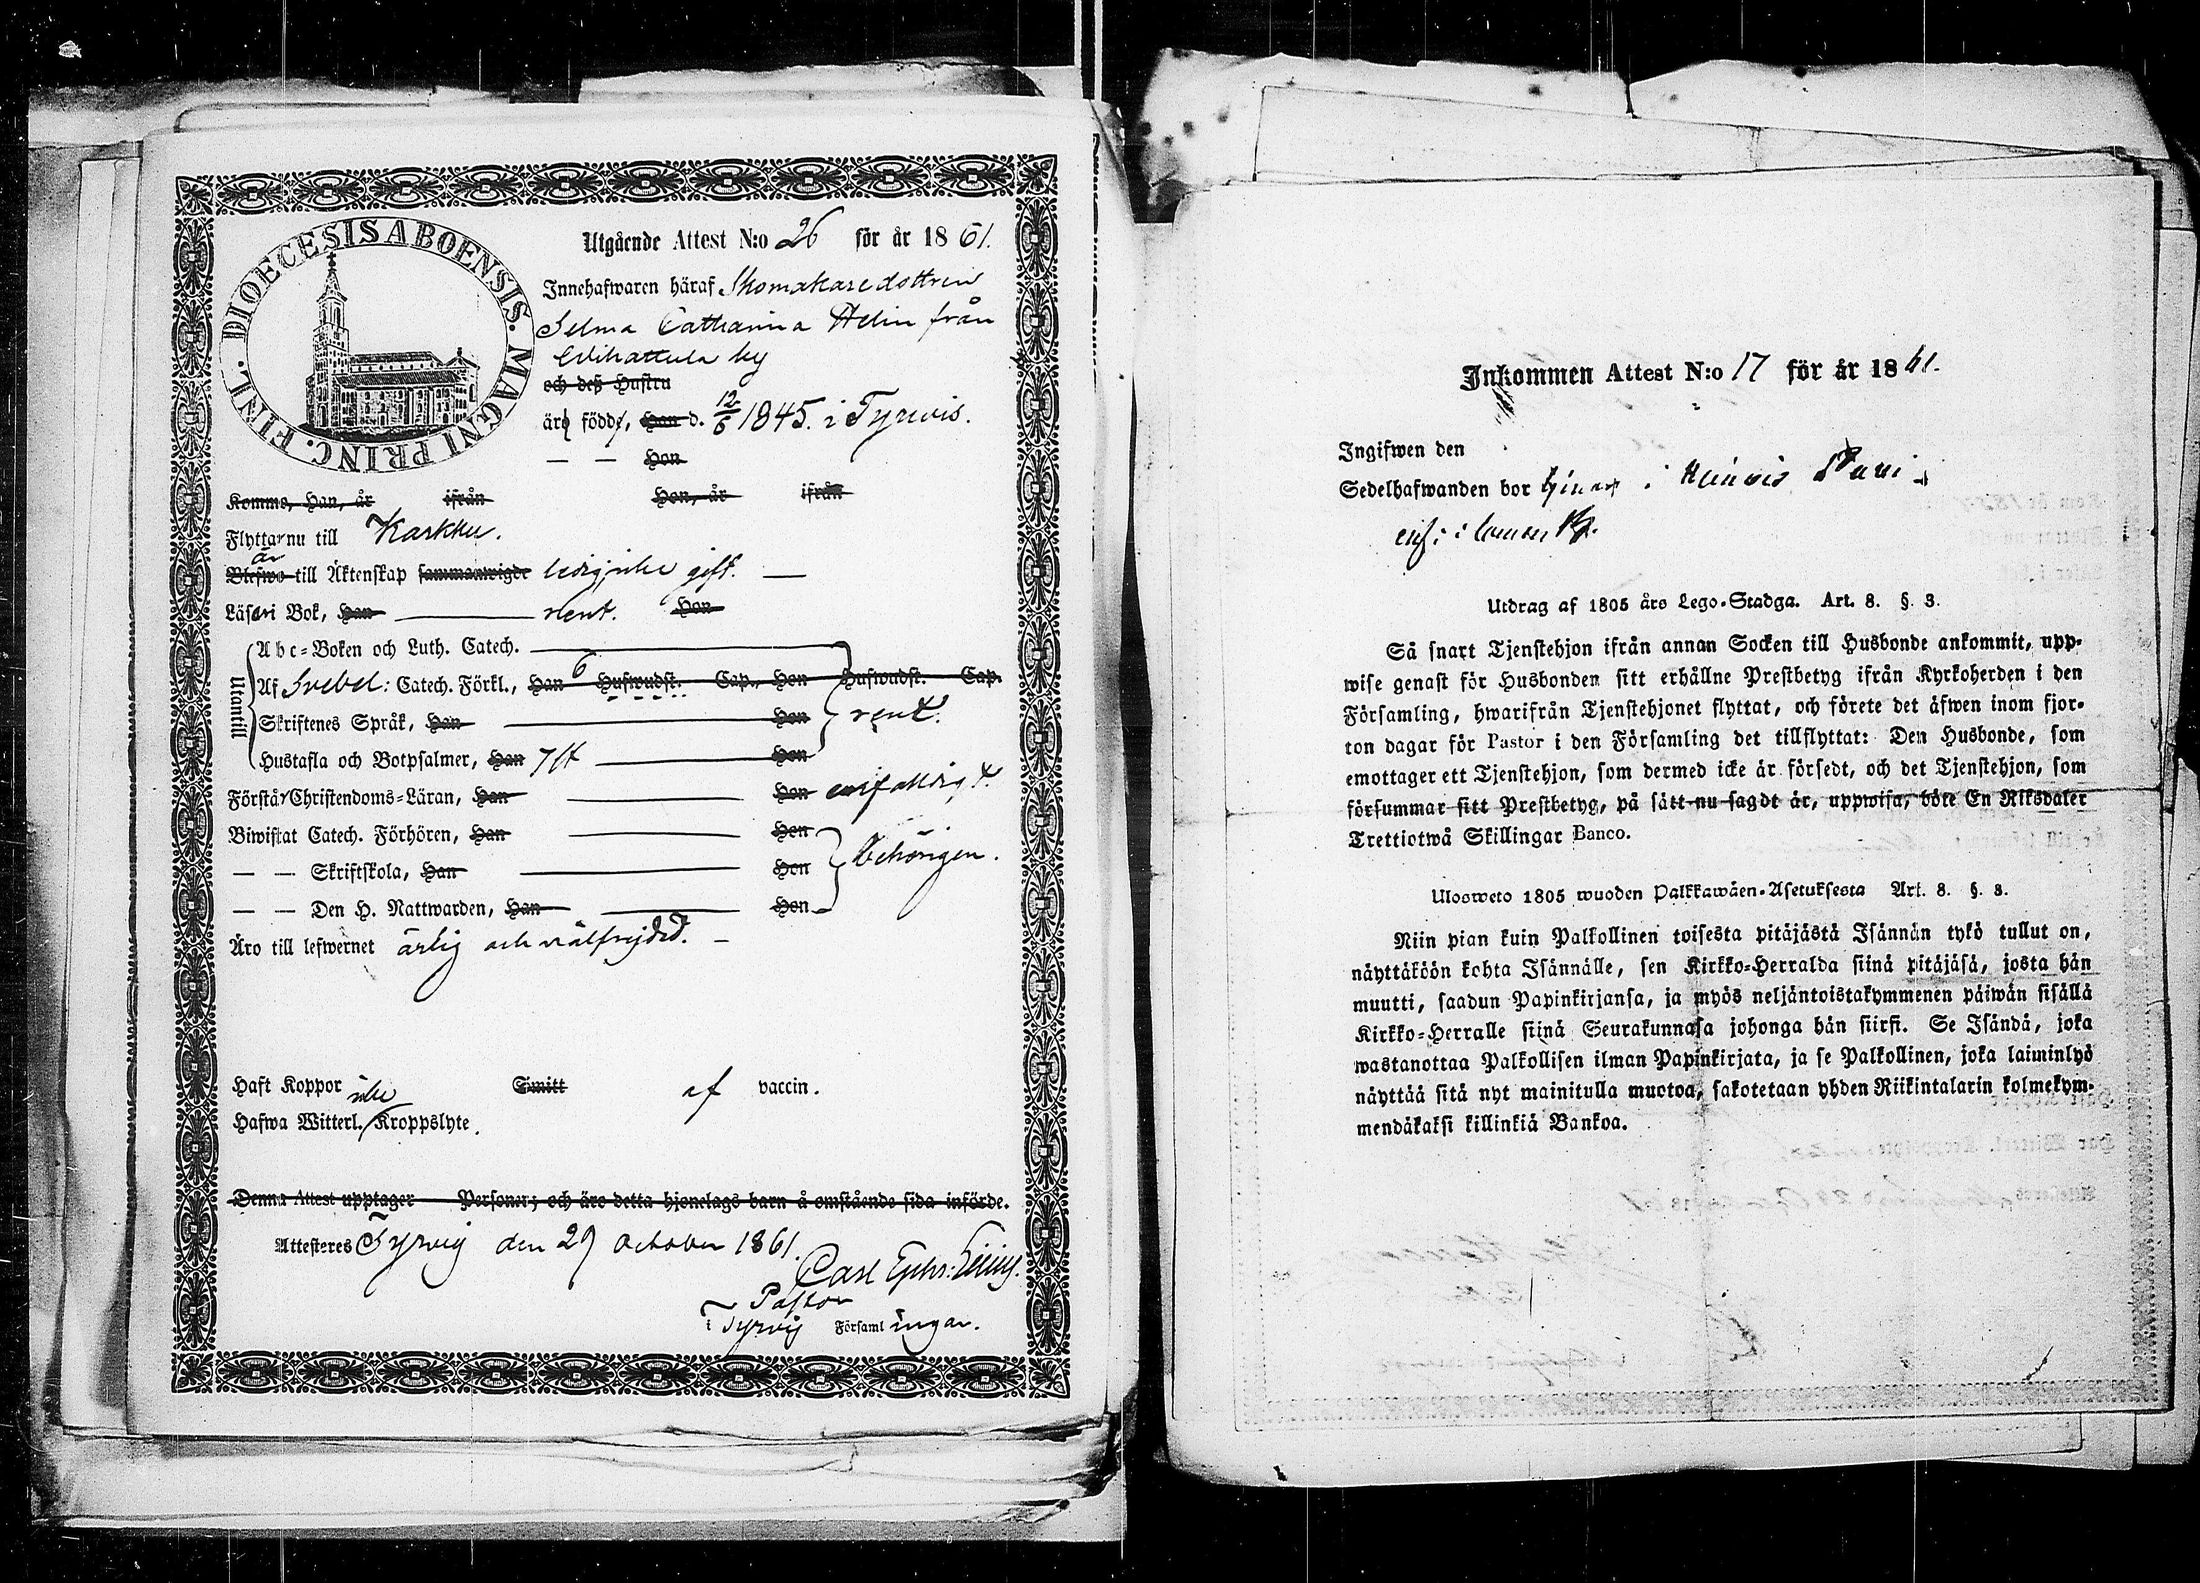 DIOECESIS ABOENSIS. MAGNI PRINC. FINL.
Utgående Attest N:o 26 för år 1861.
Innehafwaren häraf Skomakaredottren
Selma Catharina Helin från
by
och deß Hustru
äro födde, Han d. 12/6 1845. i Tyrwis.
— — Hon
Komme, Han, år ifrån Hon, år ifrån
Flyttar nu till Karkku.
är
Blefwo till Äktenskap sammanwigde ledig, icke gift. —
Läser i Bok, Han rent. Hon
Utantill
Abc-Boken och Luth. Catech.
Af Svebel: Catech. Förkl., Han 6 Hufwudst. Cap., Hon Hufwudst. Cap.
Skriftenes Språk, Han Hon rent.
Hustafla och Botpsalmer, Han 7 st Hon
Förstår Christendoms-Läran, Han Hon enfaldigt.
Biwistat Catech. Förhören, Han Hon
— — Skriftskola, Han Hon behörigen.
— — Den H. Nattwarden, Han Hon
Äro till lefwernet ärlig och välfrejdad. —
Haft Koppor Smitt af vaccin.
icke
Hafwa Witterl. Kroppslyte.
Denna Attest upptager Personer; och äro detta hjonelags barn å omstående sida införde.
Attesteres Tyrvis den 29 October 1861.
Carl Ephr:
Pastor
i Tyrvis Församlingar.
Inkommen Attest N:o 17 för år 1861.
Ingifwen den
Sedelhafwanden bor i
Utdrag af 1805 års Lego-Stadga. Art. 8. §. 3.
Så snart Tjenstehjon ifrån annan Socken till Husbonde ankommit, upp-
wise genast för Husbonden sitt erhållne Prestbetyg ifrån Kyrkoherden i den
Församling, hwarifrån Tjenstehjonet flyttat, och förete det äfwen inom fjor-
ton dagar för Pastor i den Församling det tillflyttat: Den Husbonde, som
emottager ett Tjenstehjon, som dermed icke är försedt, och det Tjenstehjon, som
försummar sitt Prestbetyg, på sätt nu sagdt är, uppwisa, böte En Riksdaler
Trettiotwå Skillingar Banco.
Ulosweto 1805 wuoden Palkkawäen-Asetuksesta Art. 8. §. 3.
Niin pian kuin Palkollinen toisesta pitäjästä Isännän tykö tullut on,
näyttäköön kohta Isännälle, sen Kirkko-Herralda siinä pitäjäsä, josta hän
muutti, saadun Papinkirjansa, ja myös neljäntoistakymmenen päiwän sisällä
Kirkko-Herralle siinä Seurakunnasa johonga hän siirsi. Se Isändä, joka
wastanottaa Palkollisen ilman Papinkirjata, ja se Palkollinen, joka laiminlyö
näyttää sitä nyt mainitulla muotoa, sakotetaan yhden Riikintalarin kolmekym-
mendäkaksi killinkiä Bankoa.